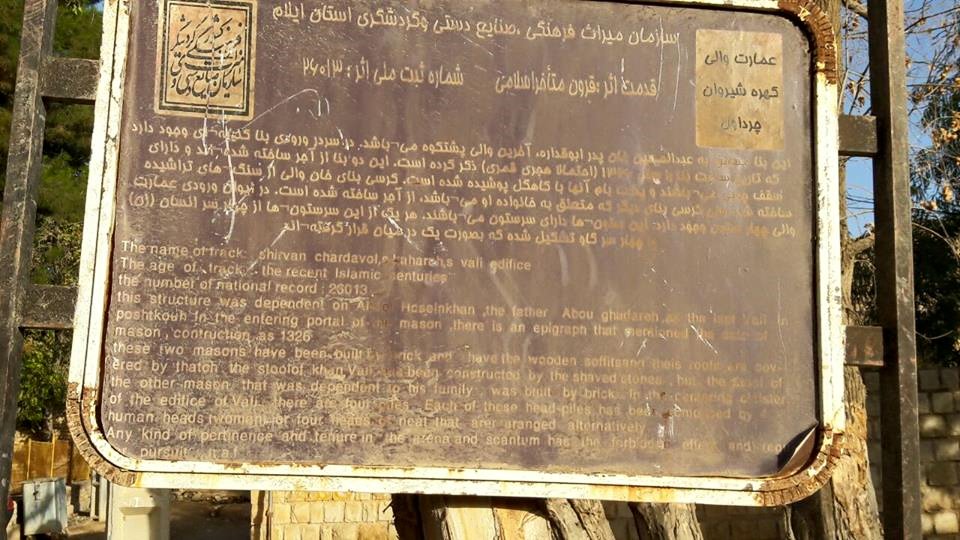 سازمان میراث فرهنگی ،صنایع دستی وگردشگری استان ایلام
قدمت اثر :قرون متأخراسلامی شماره ثبت ملی اثر : ۲۶۰۱۳
عمارت والی
کهره شیروان
چرداول
این بنا به عبدالحسین خان پدر ابوقداره، آخرین والی پشتکوه می-باشد. در سردر ورودی بنا وجود دارد
که (احتمالا هجری قمری) ذکر کرده است. این دو بنا از آجر ساخته شده اند و دارای
سقف می باشند و پشت بام آنها با کاهگل پوشیده شده است. کرسی بنای خان والی از سنگ های تراشیده
ساخته شده کرسی بنای دیگر که متعلق به خانواده او می-باشد، از آجر ساخته شده است. در ایوان ورودی عمارت
والی چهار ستون وجود دارد. این ستون-ها دارای سرستون می-باشند. هر یک از این سرستون-ها از چهار سر انسان (زن)
یا چهار سر گاو تشکیل شده که بصورت یک درمیان قرار گرفته-اند
The name of track: shirvan chardavol, kahareh,s vali edifice
The age of track : the recent Islamic centuries
the number of national record : 26013
this structure was dependent on Hoseinkhan ,the father Abou ghadareh ,as the last Vali in
poshtkouh In the entering portal of mason ,there is an epigraph that mentioned the
mason , contruction as 1326
these two masons have been built by brick and have the wooden soffitsand theis roofs are cov-
ered by thatch the stoolof khan Vali has been constructed by the shaved stones , but the stool of
the other mason that was dependent to his family was built by brick. In the
of the edifice of Vali there are four Each of these head-piles has been composed by 4
human heads (woman) or four heads of neat that are aranged alternatively
Any kind of pertinence and tenure in the arena and scantum has the forbidden and
pursuit